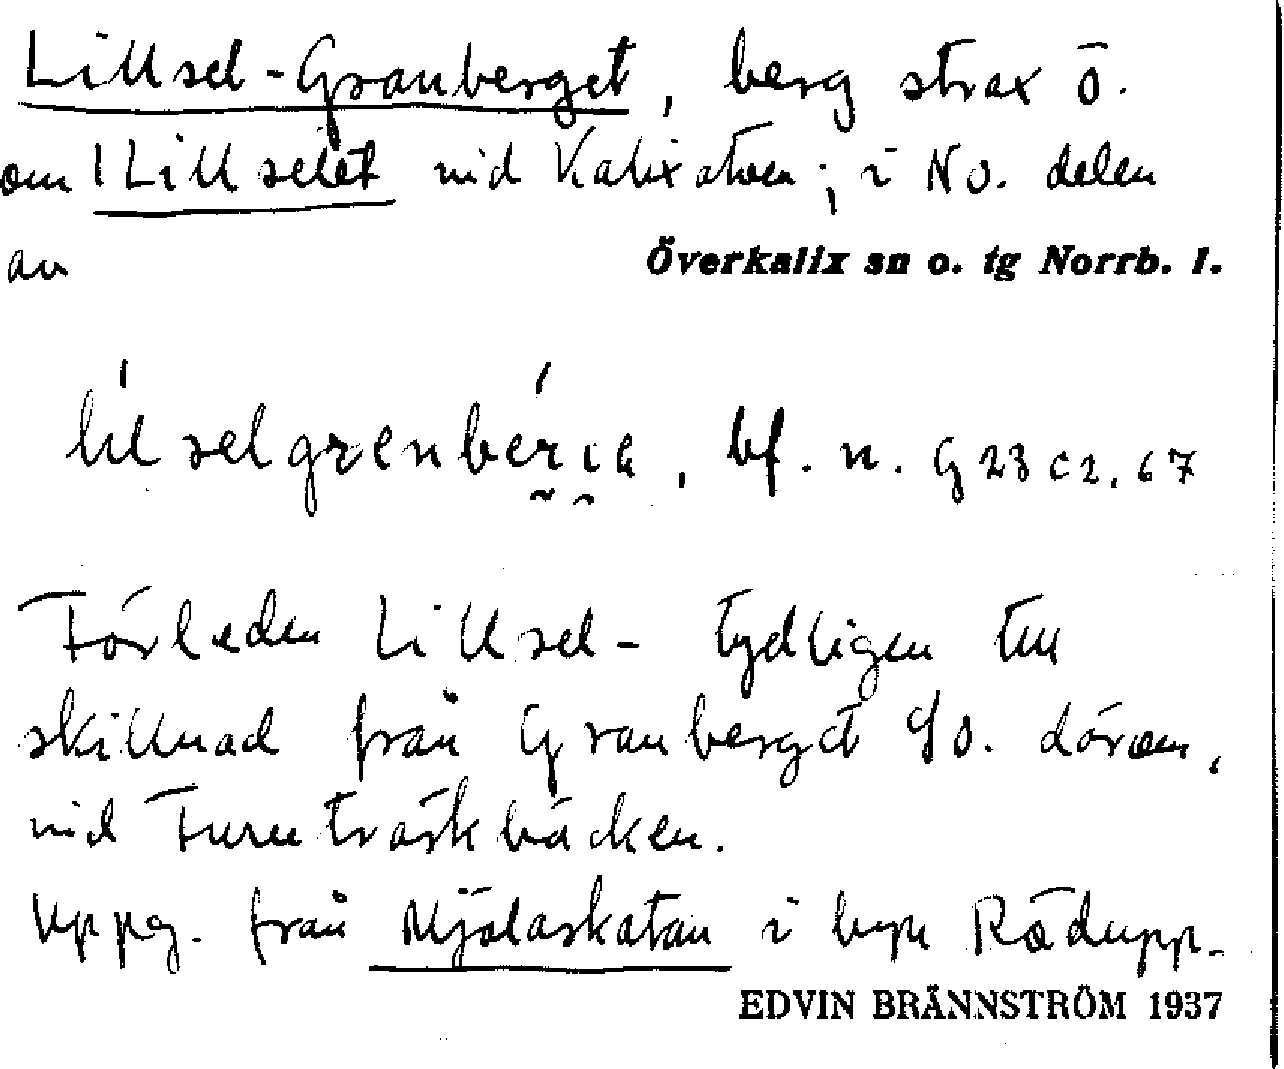 Lillsel-Granberget, berg strax ö.
om Lillselet vid Kalixälven; i NO. delen
av
Överkalix sn o. tg Norrb. l.
bf. n. G 23 c 2, 67
Förleden Lillsel- tydligen till
skillnad från Granberget SO. därom,
vid Furuträskbäcken.
Uppg. från Mjölaskatan i byn Rödupp.
EDVIN BRÄNNSTRÖM 1937